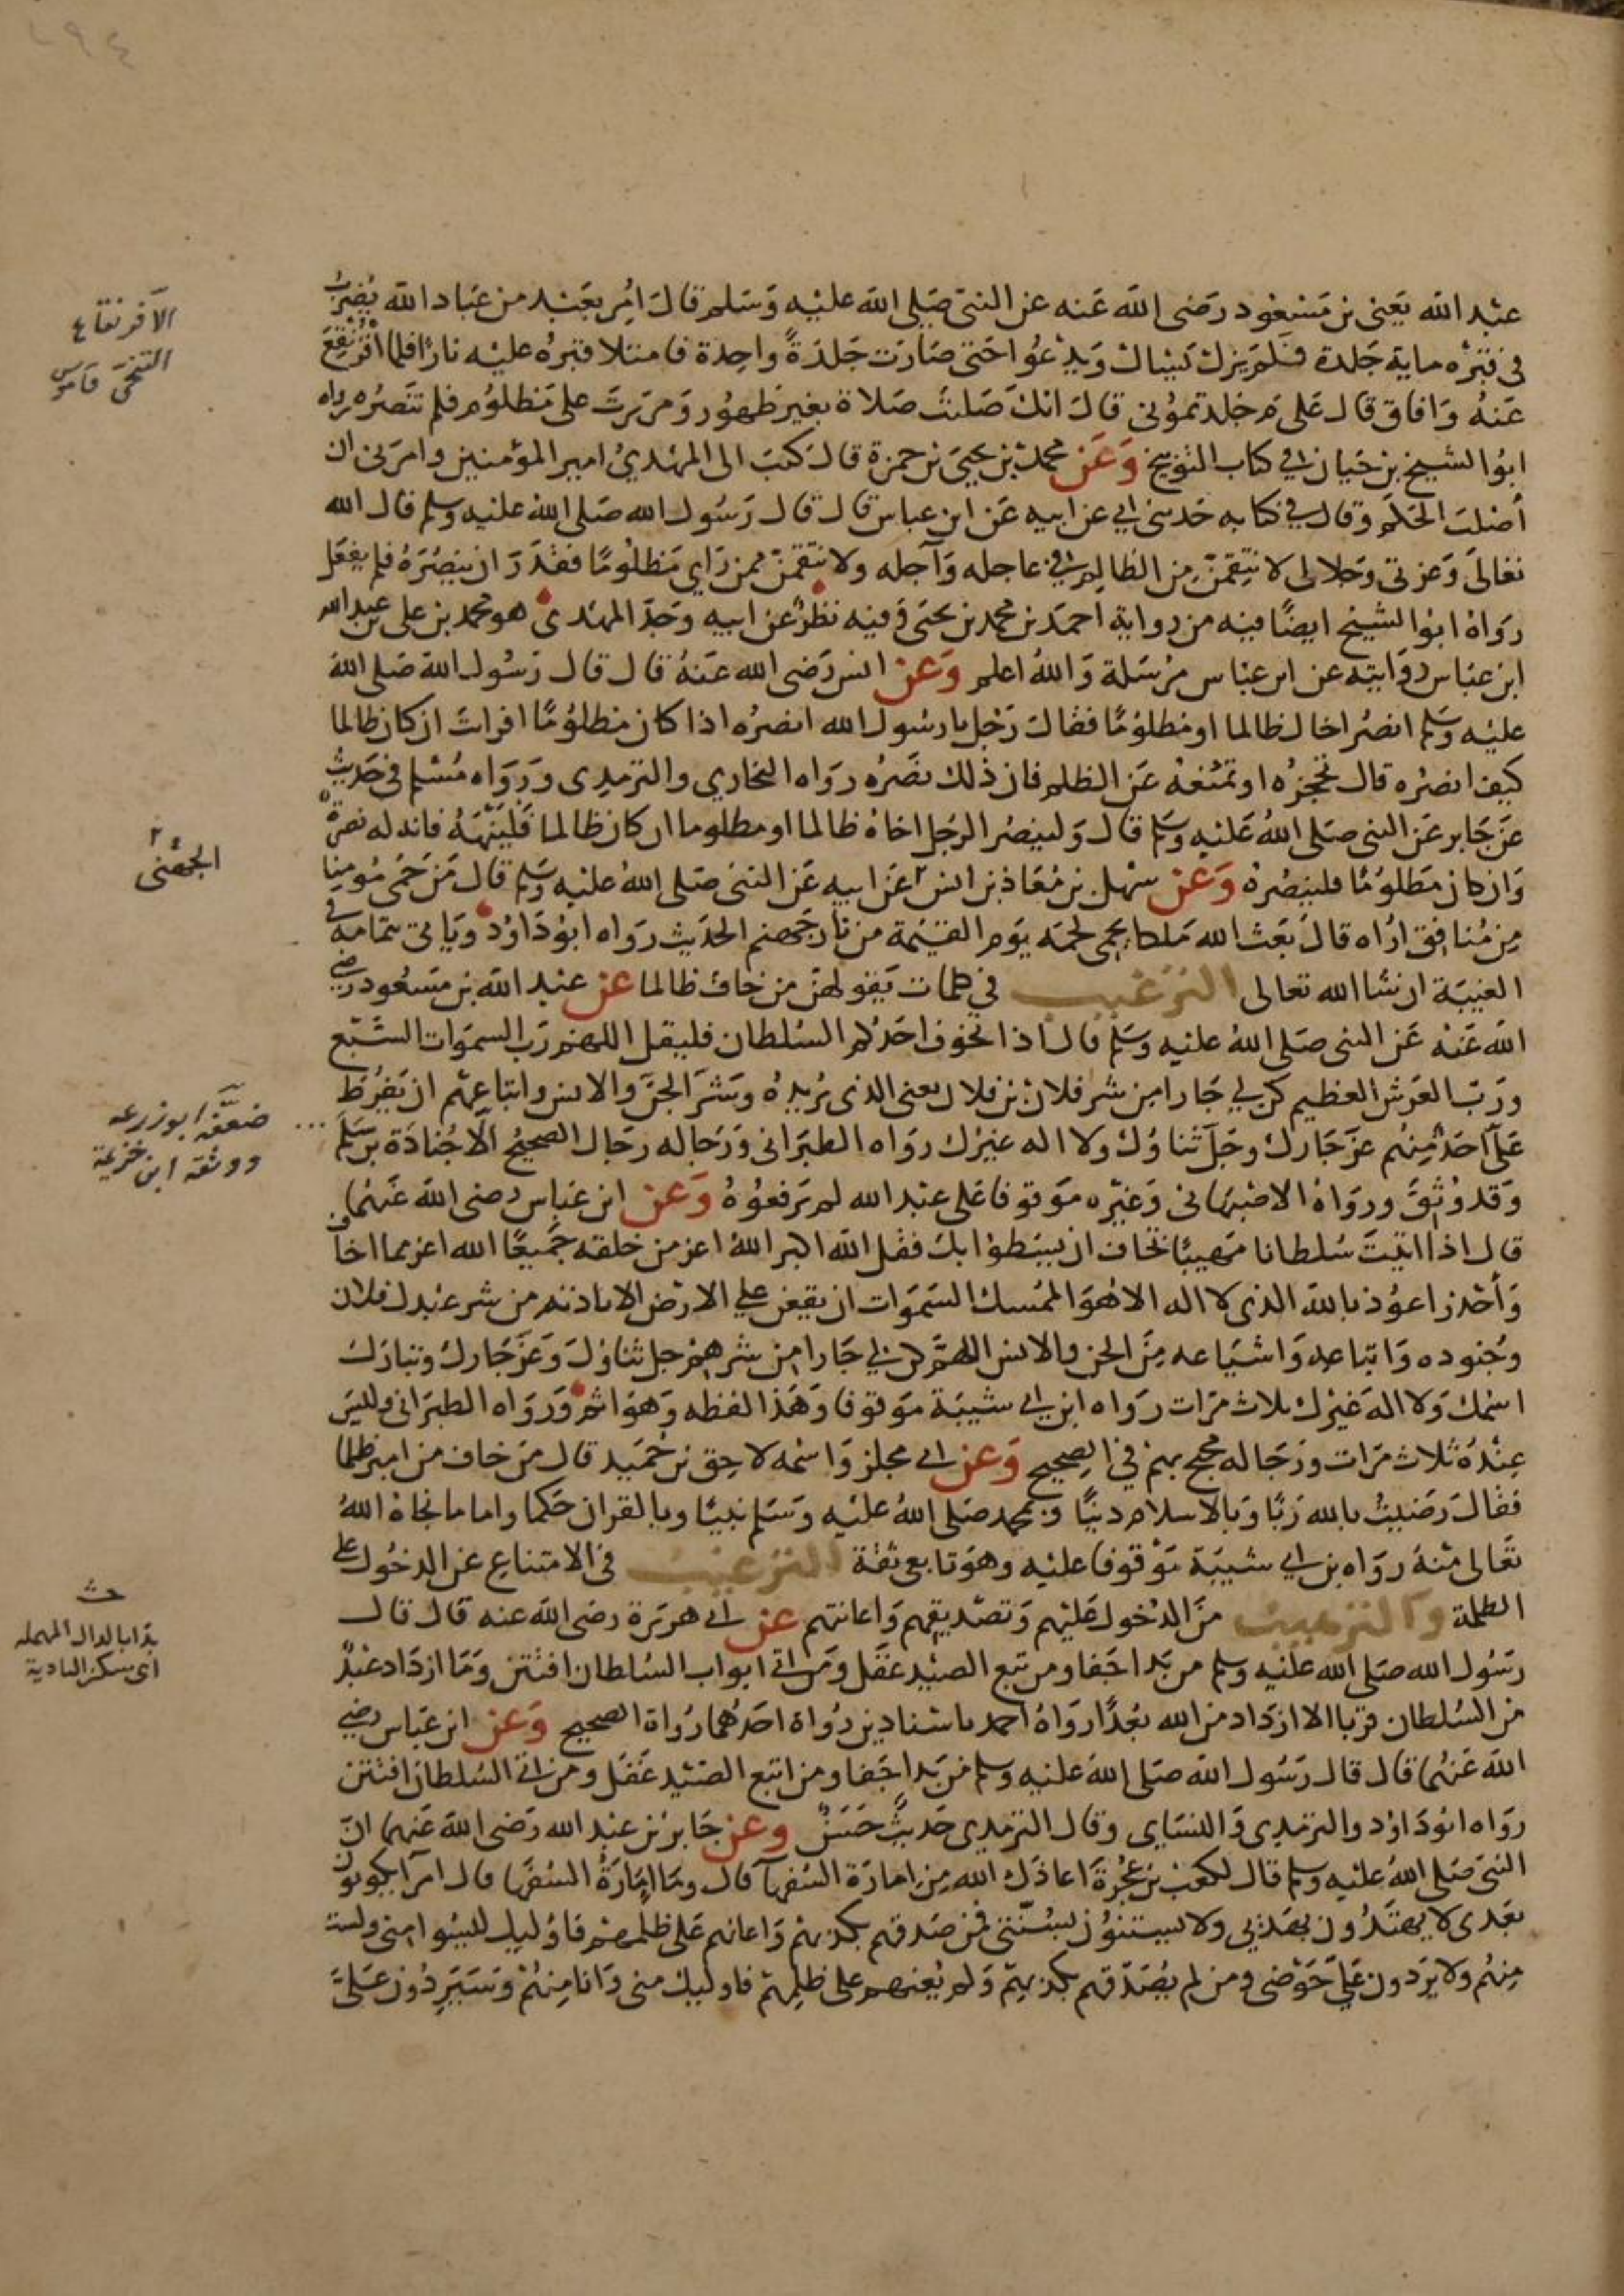 ٢٩٤
عبد الله يعنى بن مسعود رضى الله عنه عن النبى صلى الله عليه وسلم قال امر بعبد من عباد الله يضرب
فى قبره ماية جلدة فلم يزل يسال ويدعوا حتى صارت جلدة واحدة فامتلا قبره عليه نارا فلما افرنقع
عنه وافاق قال على م جلدتمونى قال انك صليت صلاة بغير طهور ومررت على مظلوم فلم تنصره رواه
ابو الشيخ بن حيان فى كتاب التوبيخ وعن محمد بن يحيى بن حمزة قال كتب الى المهدى امير المؤمنين وامرنى ان
أصلب الحكم وقال فى كتابه حدثنى ابى عن ابيه عن ابن عباس قال قال رسول الله صلى الله عليه وسلم قال الله
تعالى وعزتى وجلالى لانتقمن من الظالم فى عاجله وآجله ولانتقمن ممن راى مظلوما فقدر ان ينصره فلم يفعل
رواه ابو الشيخ ايضا فيه من رواية احمد بن محمد بن يحيى وفيه نظر عن ابيه وجد المهدى هو محمد بن على بن عبد الله
ابن عباس وروايته عن ابن عباس مرسلة والله اعلم وعن انس رضى الله عنه قال قال رسول الله صلى الله
عليه وسلم انصر اخاك ظالما او مظلوما فقال رجل يا رسول الله انصره اذا كان مظلوما افرايت ان كان ظالما
كيف انصره قال تحجزه او تمنعه عن الظلم فان ذلك نصره رواه البخارى والترمذى ورواه مسلم فى حديث
عن جابر عن النبى صلى الله عليه وسلم قال ولينصر الرجل اخاه ظالما او مظلوما ان كان ظالما فلينهه فانه له نصرة
وان كان مظلوما فلينصره وعن سهل بن معاذ بن انس عن ابيه عن النبى صلى الله عليه وسلم قال من حمى مؤمنا
من منافق اراه قال بعث الله ملكا يحمى لحمه يوم القيمة من نار جهنم الحديث رواه ابو داود وياتى بتمامه فى
الغيبة ان شا الله تعالى الترغيب فى كلمات يقولهن من خاف ظالما عن عبد الله بن مسعود رضى
الله عنه عن النبى صلى الله عليه وسلم قال اذا تخوف احدكم السلطان فليقل اللهم رب السموات السبع
ورب العرش العظيم كن لى جارا من شر فلان بن فلان يعنى الذى يريده وشر الجن والانس واتباعهم ان يفرط
على احد منهم عز جارك وجل ثناؤك ولا اله غيرك رواه الطبرانى ورجاله رجال الصحيح الا جنادة بن سلم
وقد وثق ورواه الاصبهانى وغيره موقوفا على عبد الله لم يرفعوه وعن ابن عباس رضى الله عنهما
قال اذا اتيت سلطانا مهيبا تخاف ان يسطوا بك فقل الله اكبر الله اعز من خلقه جميعا الله اعز مما اخاف
وأحذر اعوذ بالله الذى لا اله الا هو الممسك السموات ان يقعن على الارض الا باذنه من شر عبدك فلان
وجنوده واتباعه واشياعه من الجن والانس اللهم كن لى جارا من شرهم جل ثناؤك وعز جارك وتبارك
اسمك ولا اله غيرك ثلاث مرات رواه ابن ابى شيبة موقوفا وهذا لفظه وهو اتم ورواه الطبرانى وليس
عنده ثلاث مرات ورجاله محتج بهم فى الصحيح وعن ابى مجلز واسمه لاحق بن حميد قال من خاف من امير ظلما
فقال رضيت بالله ربا وبالاسلام دينا وبمحمد صلى الله عليه وسلم نبيا وبالقران حكما واماما نجاه الله
تعالى منه رواه بن ابى شيبة موقوفا عليه وهو تابعى ثقة الترغيب فى الامتناع عن الدخول على
الظلمة والترهيب من الدخول عليهم وتصديقهم واعانتهم عن ابى هريرة رضى الله عنه قال قال
رسول الله صلى الله عليه وسلم من بدا جفا ومن تبع الصيد غفل ومن اتى ابواب السلطان افتتن وما ازداد عبد
من السلطان قربا الا ازداد من الله بعدا رواه احمد باسنادين رواة احدهما رواة الصحيح وعن ابن عباس رضى
الله عنهما قال قال رسول الله صلى الله عليه وسلم من بدا جفا ومن اتبع الصيد غفل ومن اتى السلطان افتتن
رواه ابو داود والترمذى والنساى وقال الترمذى حديث حسن وعن جابر بن عبد الله رضى الله عنهما ان
النبى صلى الله عليه وسلم قال لكعب بن عجرة اعاذك الله من امارة السفها قال وما امارة السفها قال امرا يكونون
بعدى لا يهتدون بهديى ولا يستنون بسنتى فمن صدقهم بكذبهم واعانهم على ظلمهم فاوليك ليسوا منى ولست
منهم ولا يردون على حوضى ومن لم يصدقهم بكذبهم ولم يعنهم على ظلمهم فاوليك منى وانا منهم وسيردون على
الافرنقاع
التنحى قاموس
الجهنى
ضعفه ابو زرعه
ووثقه ابن خزيمة
بدا بالدال المهمله
اى سكن البادية